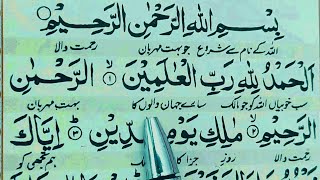 بِسْمِ اللهِ الرَّحْمٰنِ الرَّحِيْمِ
اللہ کے نام سے شروع جو بہت مہربان رحمت والا
اَلْحَمْدُ لِلّٰهِ رَبِّ الْعٰلَمِيْنَ ۱ الرَّحْمٰنِ
سب خوبیاں اللہ کو جو مالک سارے جہان والوں کا بہت مہربان
الرَّحِيْمِ ۲ مٰلِكِ يَوْمِ الدِّيْنِ ۳ اِيَّاكَ
رحمت والا روزِ جزا کا مالک ہم تجھی کو